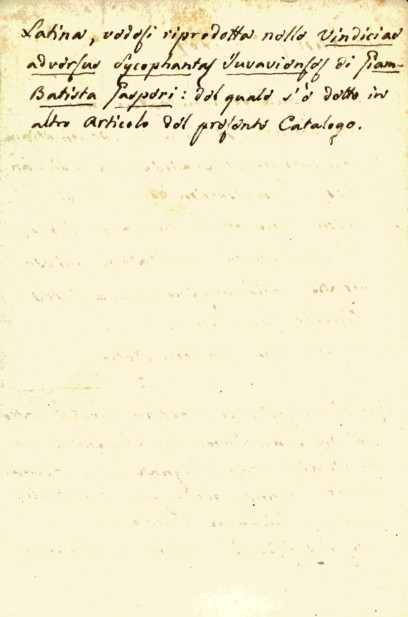 Latina, vedesi riprodotta nelle Vindiciae
adversus Sycophantas Juvavienses di Giam-
Batista Gasperi: del quale s'è detto in
altro Articolo del presente Catalogo.